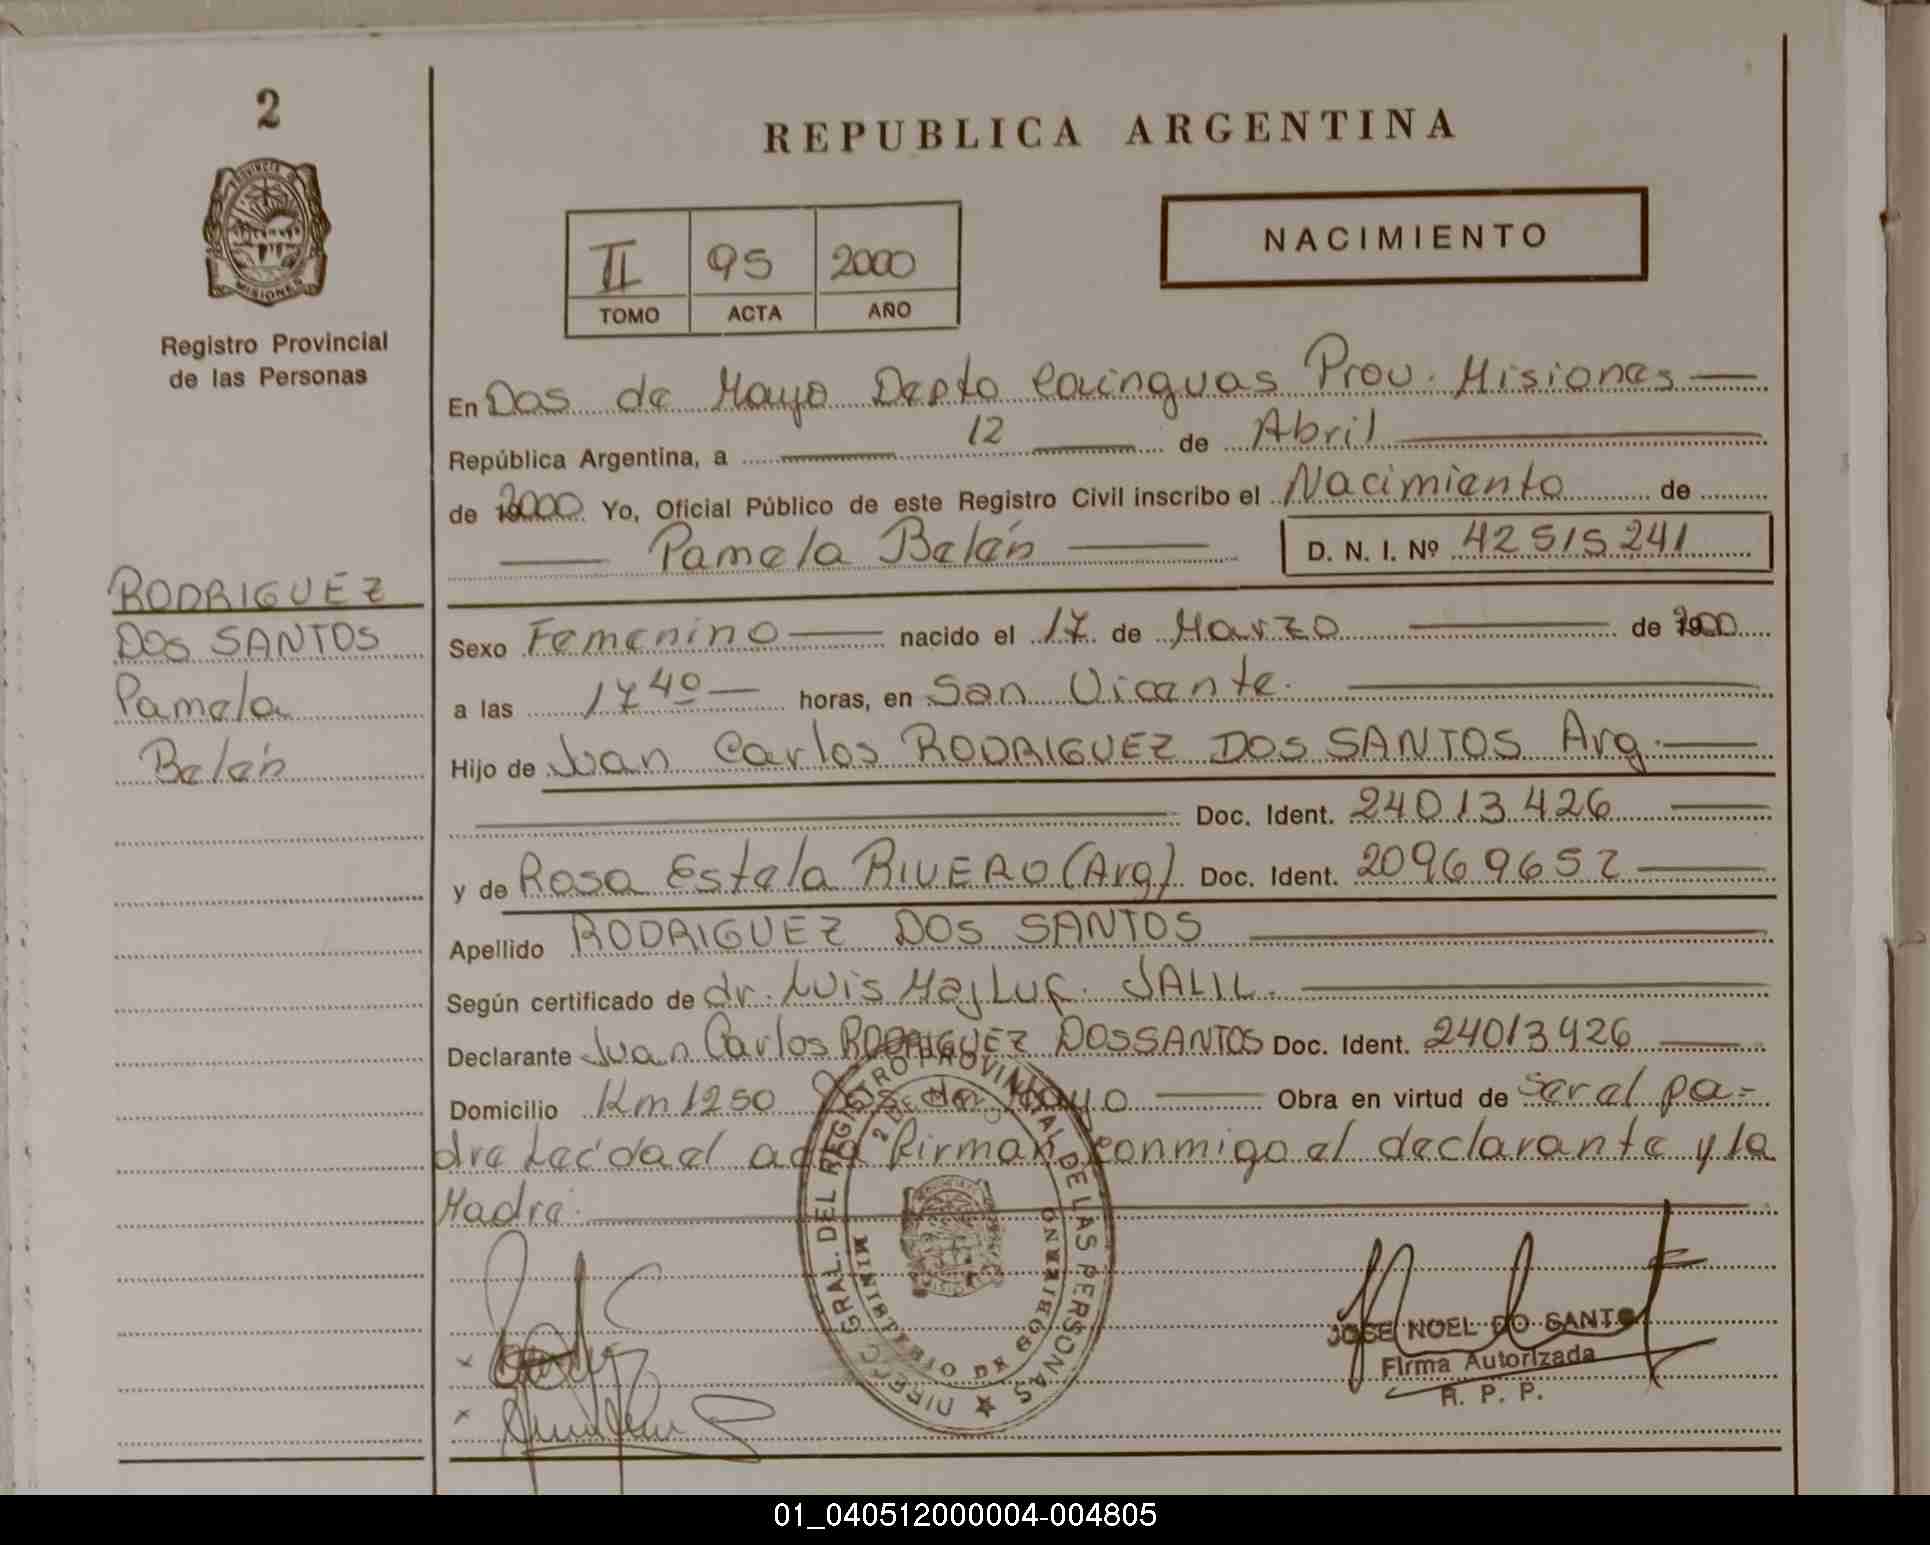 2
REPUBLICA ARGENTINA
PROVINCIA D
MISIONES
Registro Provincial
de las Personas
II 95 2000
TOMO ACTA AÑO
NACIMIENTO
En Dos de Mayo Depto Cainguas Prov. Misiones
República Argentina, a 12 de Abril
de 2000 Yo, Oficial Público de este Registro Civil inscribo el Nacimiento de
Pamela Belén D. N. I. Nº 42515241
RODRIGUEZ
DOS SANTOS
Pamela
Belén
Sexo Femenino nacido el 17 de Marzo de 2000
a las 17 40 horas, en San Vicente.
Hijo de Juan Carlos RODRIGUEZ DOS SANTOS Arg.
Doc. Ident. 24013426
y de Rosa Estela RIVERO (Arg) Doc. Ident. 20969652
Apellido RODRIGUEZ DOS SANTOS
Según certificado de dr. Luis Majluf. JALIL.
Declarante Juan Carlos RODRIGUEZ DOS SANTOS Doc. Ident. 24013426
Domicilio Km 1250 Dos de Mayo Obra en virtud de ser el pa=
dre Leída el acta firman conmigo el declarante y la
Madre.
DIRECC. GRAL. DEL REGISTRO PROVINCIAL DE LAS PERSONAS
MINISTERIO DE GOBIERNO
JOSE NOEL DO SANTO
Firma Autorizada
R. P. P.
01_040512000004-004805